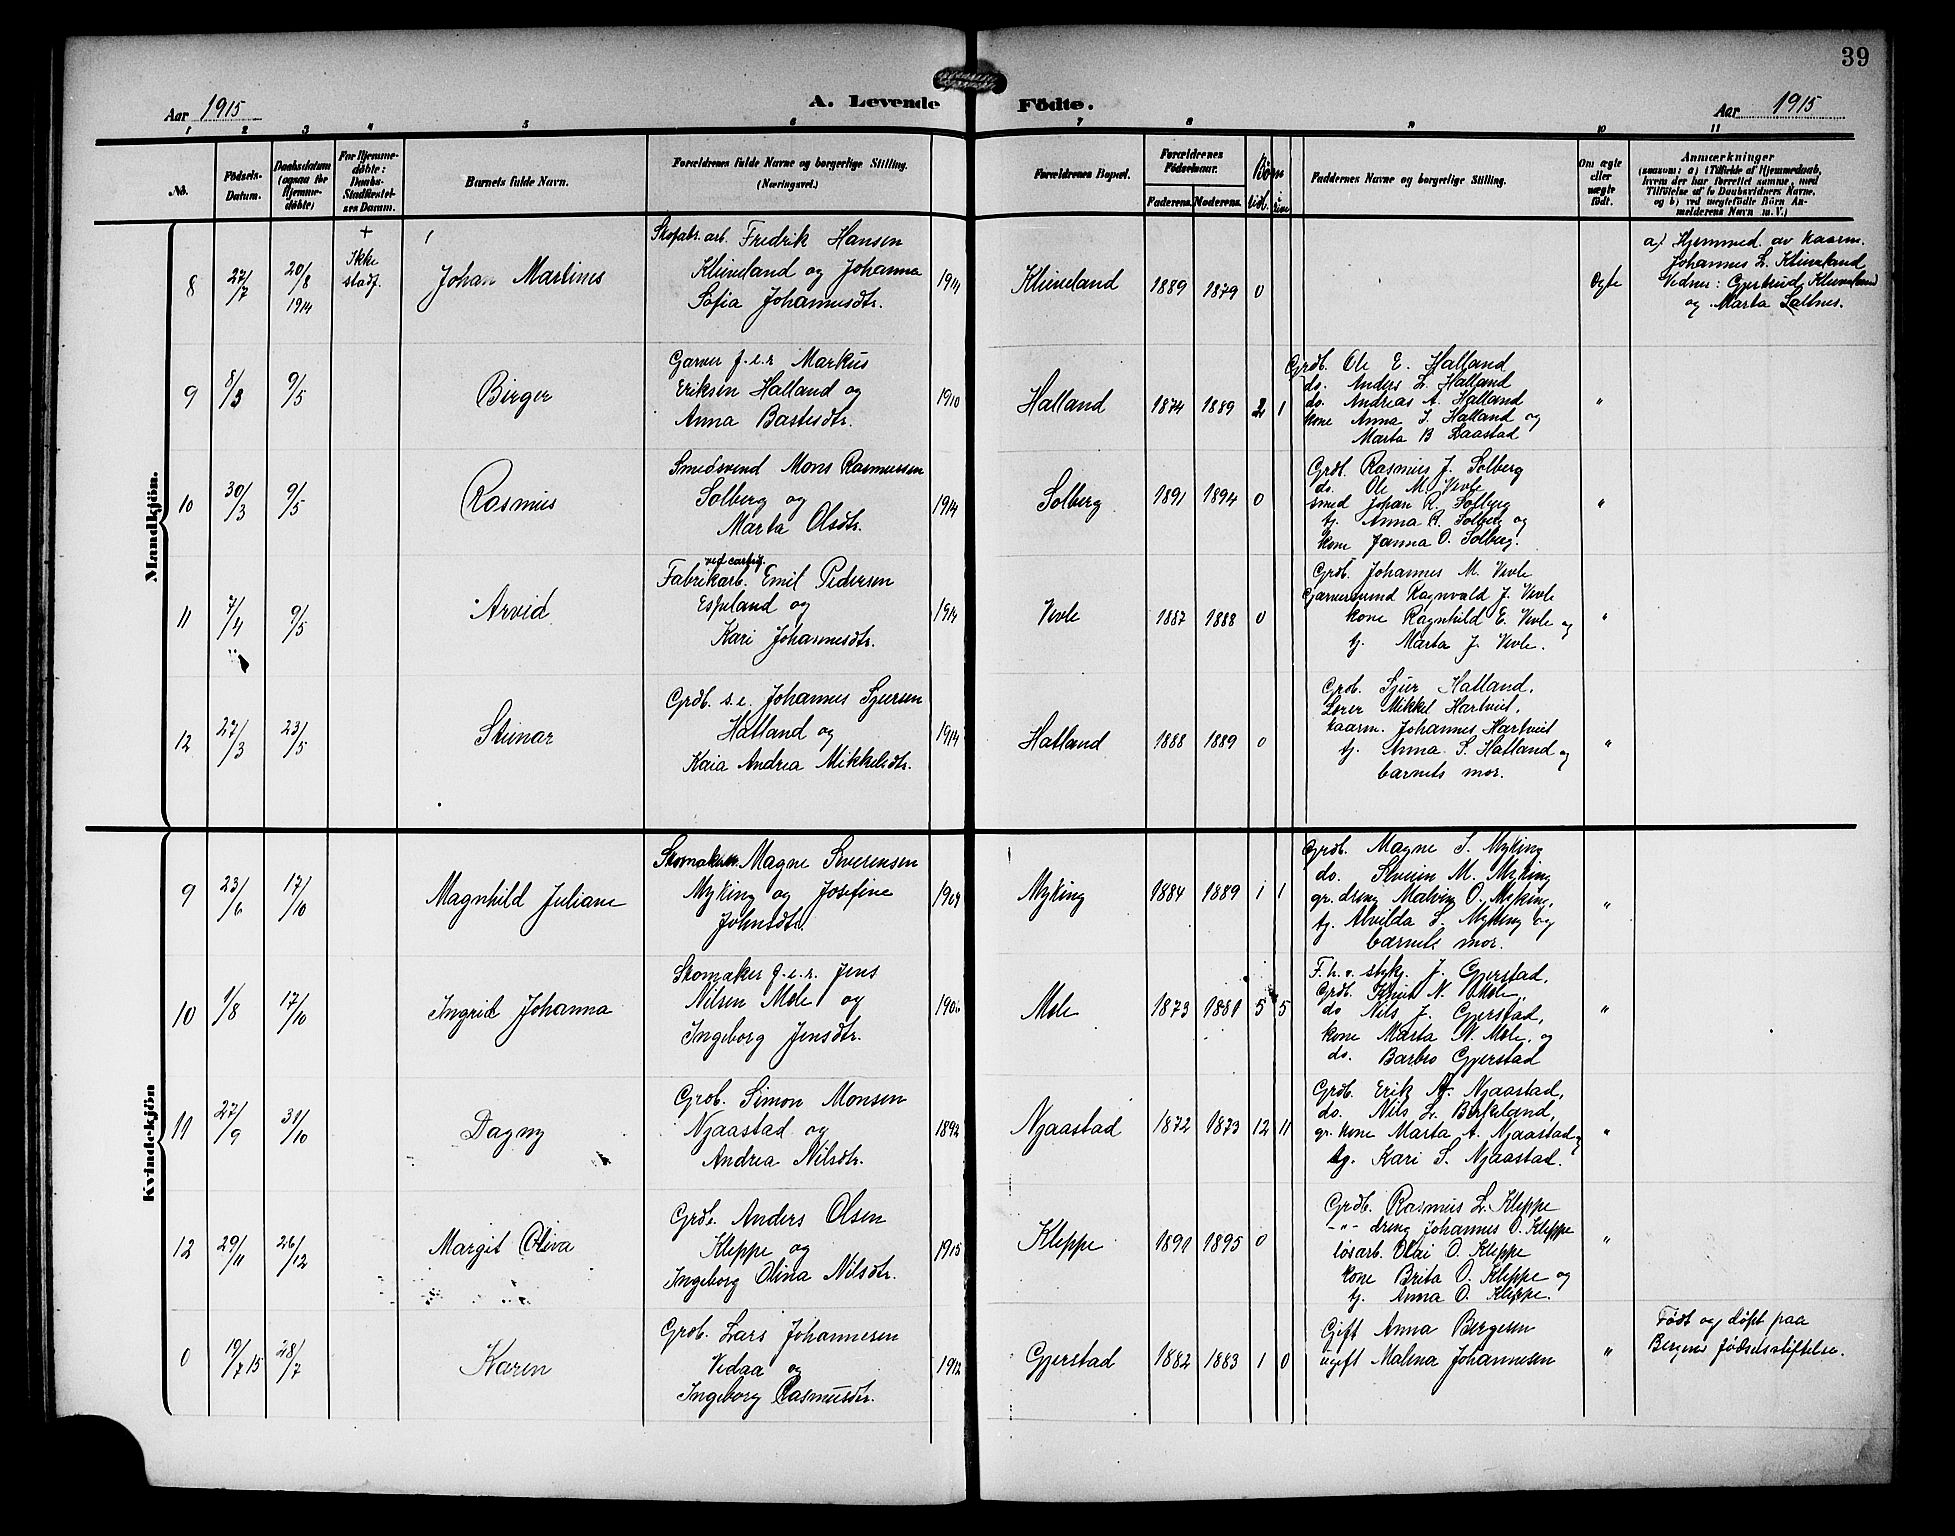 39
Aar 1915 A. Levende Födte. Aar 1915
1 2 3 4 5 6 7 8 9 10 11
No.
Födsels-
Datum.
Daabsdatum
(ogsaa for
Hjemme-
döbte)
For Hjemme-
döbte:
Daabs-
Stadfæstel-
ses Datum.
Barnets fulde Navn.
Forældrenes fulde Navne og borgerlige Stilling.
(Næringsvei.)
Forældrenes Bopæl.
Forældrenes
Födselsaar.
Faderens. Moderens.
Börn
Faddernes Navne og borgerlige Stilling.
Om ægte
eller
uægte
födt.
Anmærkninger
(saasom: a) i Tilfælde af Hjemmedaab,
hvem der har forrettet samme, med
Tilföielse af to Daabsvidners Navne,
og b) ved uegtefödte Börn An-
melderens Navn m. V.)
Mandkjön.
8 27/7 20/8 1914
+
Ikke
stadf.
Johan Martines
Skofabr. arb. Fredrik Hansen
Kleiveland og Johanna
Sofia Johannesdtr.
1914
Kleiveland 1889 1879 0
Ægte
a) Hjemmed. av kaarm.
Johannes L. Kleiveland
Vidner: Gjertrud Kleiveland
og Marta Saltnes.
9 8/3 9/5 Birger
Garver f.e.r Markus
Eriksen Halland og
Anna Bastesdtr.
1910
Halland 1874 1889 2 1
Grdb. Ole E. Halland
do. Anders L. Halland
do. Andreas A. Halland
kone Anna I. Halland og
Marta B Daastad
"
10 30/3 9/5 Rasmus
Smedsvend Mons Rasmussen
Solberg og
Marta Olsdtr.
1914
Solberg 1891 1894 0
Grdb. Rasmus J. Solberg
do. Ole M. Vevle
smed Johan R. Solberg
tj. Anna R. Solberg og
kone Janna O. Solberg.
"
11 7/4 9/5 Arvid
Fabrikarb. Emil Pedersen
Espeland og
Kari Johannesdtr.
1914
Vevle 1887 1888 0
Grdb. Johannes M. Vevle
Garversvend Ragnvald J. Vevle
kone Ragnhild E. Vevle og
tj. Marta J. Vevle.
"
12 27/3 23/5 Steinar
Grdb. s.e. Johannes Sjursen
Hatland og
Kaia Andrea Mikkelsdtr.
1914
Hatland 1888 1889 0
Grdb. Sjur Hatland,
Lærer Mikkel Hartveit,
kaarm. Johannes Hartveit
tj. Anna S. Hatland og
barnets mor.
"
Kvindekjön
9 23/6 17/10 Magnhild Juliane
Skomaker. Magne Severinsen
Myking og Josefine
Johnsdtr.
1909
Myking 1884 1889 1 1
Grdb. Magne S. Myking
do. Severin M. Myking
gr. dreng Malvin O. Myking,
tj. Alvilda S. Myking og
barnets mor.
"
10 1/8 17/10 Ingrid Johanna
Skomaker g.e.r. Jens
Nilsen Mele og
Ingeborg Jensdtr.
1906
Mele 1873 1881 5 5
F.h.v. stykj. J. Gjerstad,
Grdb. Knut N. Mele,
do Nils J. Gjerstad,
kone Marta N. Mele, og
do. Barbro Gjerstad
"
11 27/9 31/10 Dagny
Grdb. Simon Monsen
Njaastad og
Andrea Nilsdtr.
1892
Njaastad 1872 1873 12 11
Grdb. Erik A. Njaastad,
do. Nils L. Birkeland,
gr. kone Marta A. Njaastad og
tj. Kari S. Njaastad.
"
12 29/11 26/12 Margit Oliva
Grdb. Anders Olsen
Kleppe og
Ingeborg Olina Nilsdtr.
1915
Kleppe 1891 1895 0
Grdb. Rasmus L. Kleppe
-"- dreng Johannes O. Kleppe
løsarb. Olai O. Kleppe
kone Brita O. Kleppe og
tj. Anna O. Kleppe.
"
0 19/7 15 28/7 Karen
Grdb. Lars Johannesen
Vedaa og
Ingeborg Rasmusdtr.
1912
Gjerstad 1882 1883 1 0
Gift Anna Bergesen
ugift Malena Johannesen
"
Født og døpt paa
Bergens fødselsstiftelse.